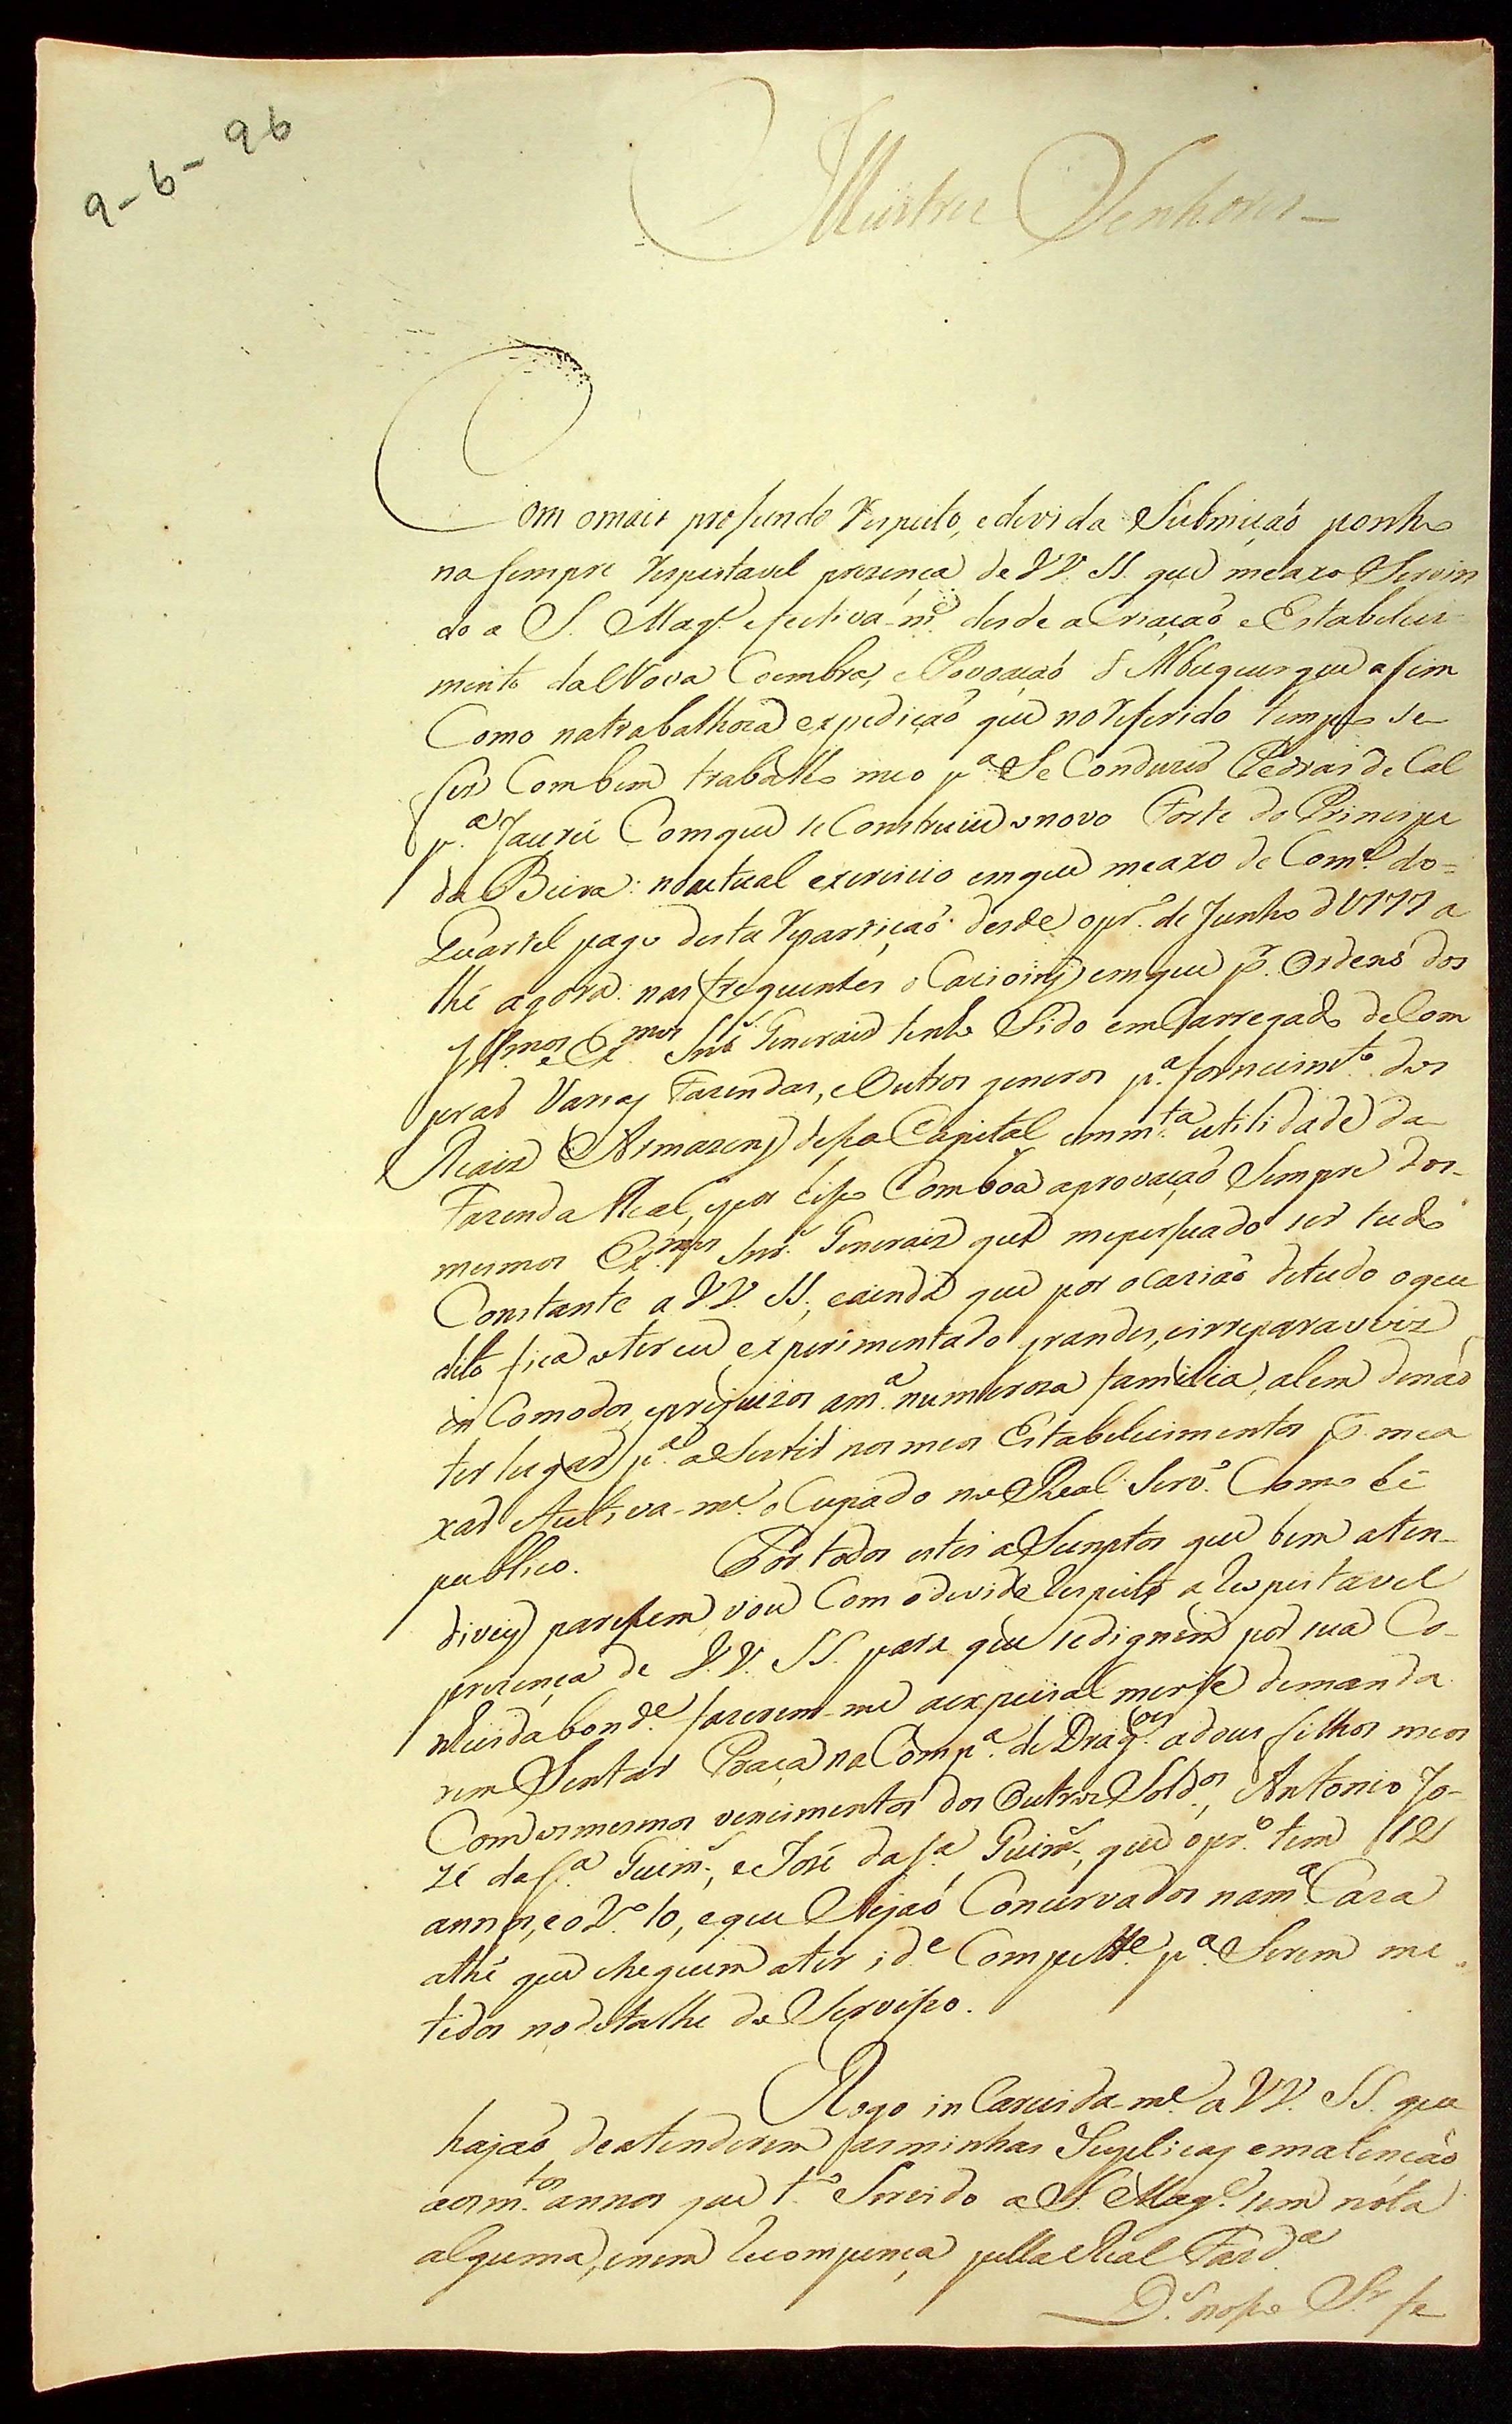 9-6-96
Illustres Senhores
Com omais profundo respeito, edevida Submição ponho
na sempre respeitavel prezença de VV. SS. que meaxo Servin
do a S. Mag.e efectiva-m.e desde aCriação e Estabeleci-
mento daNova Coimbra, e Povoação d'Albuquerque asim
Como natrabalhoza expedição que noreferido tempo se
fes Combem trabalho meo p.a Se Conduzir Pedras de Cal
p.a Jaurú Comque se Construiu onovo Forte do Principe
da Beira: noactual exercicio emque meaxo de Com.e do
Quartel pago desta repartição desde opr.o de Junho d1777 a
thé agora: nas frequentes oCazioins emque p.r Ordens dos
Ill.mos e Ex.mos Snr.s Generais tenho Sido emCarregado deCom
prar Varias Fazendas, eOutros generos p.a fornecim.to dos
Reais Armazens desa Capital emm.ta utilidade da
Fazenda Real, epor iso Comboa aprovação Sempre dos
mesmos Ex.mos Snr.s Generais que mepersuado ser tudo
Constante a VV. SS., eainda que por ocazião detudo oque
dito fica oter eu experimentado grandes, eirreparaveis
inComodos, eprejuizos am.a numeroza familia, alem denão
ter lugar p.a aSestir nosmeos Estabelecimentos p.r mea
xar efectiva-m.e oCupado noReal Serv.o Como hé
publico. Por todos estes aSumptos que bem aten-
diveis paresem, vou Com odevido respeito a respeitavel
prezença de V.V. SS. para que sedignem por sua Co-
nhecida bond.e fazerem-me aexpecial merse demanda
rem Sentar Praça na Comp.a de Drag.oes adous filhos meos
Com osmesmos vencimentos dos Outros Sold.os, Antonio Jo-
zé daS.a Guim.s, e José daS.a Guim.s, que opr.o tem 12
annos, e o 2.o 10, eque Sejão Concervados nam.a Caza
athé que cheguem ater id.e Compett.e p.a Serem me-
tidos nodetalhe do Serviso.
Rogo inCarecida-m.e a VV. SS. que
hajão deatenderem asminhas Suplicas ematenção
aosm.tos annos que t.o Servido aS. Mag.e sem nóta
alguma, enem recompença pella Real Fazd.a
D.s noso Sr. fe